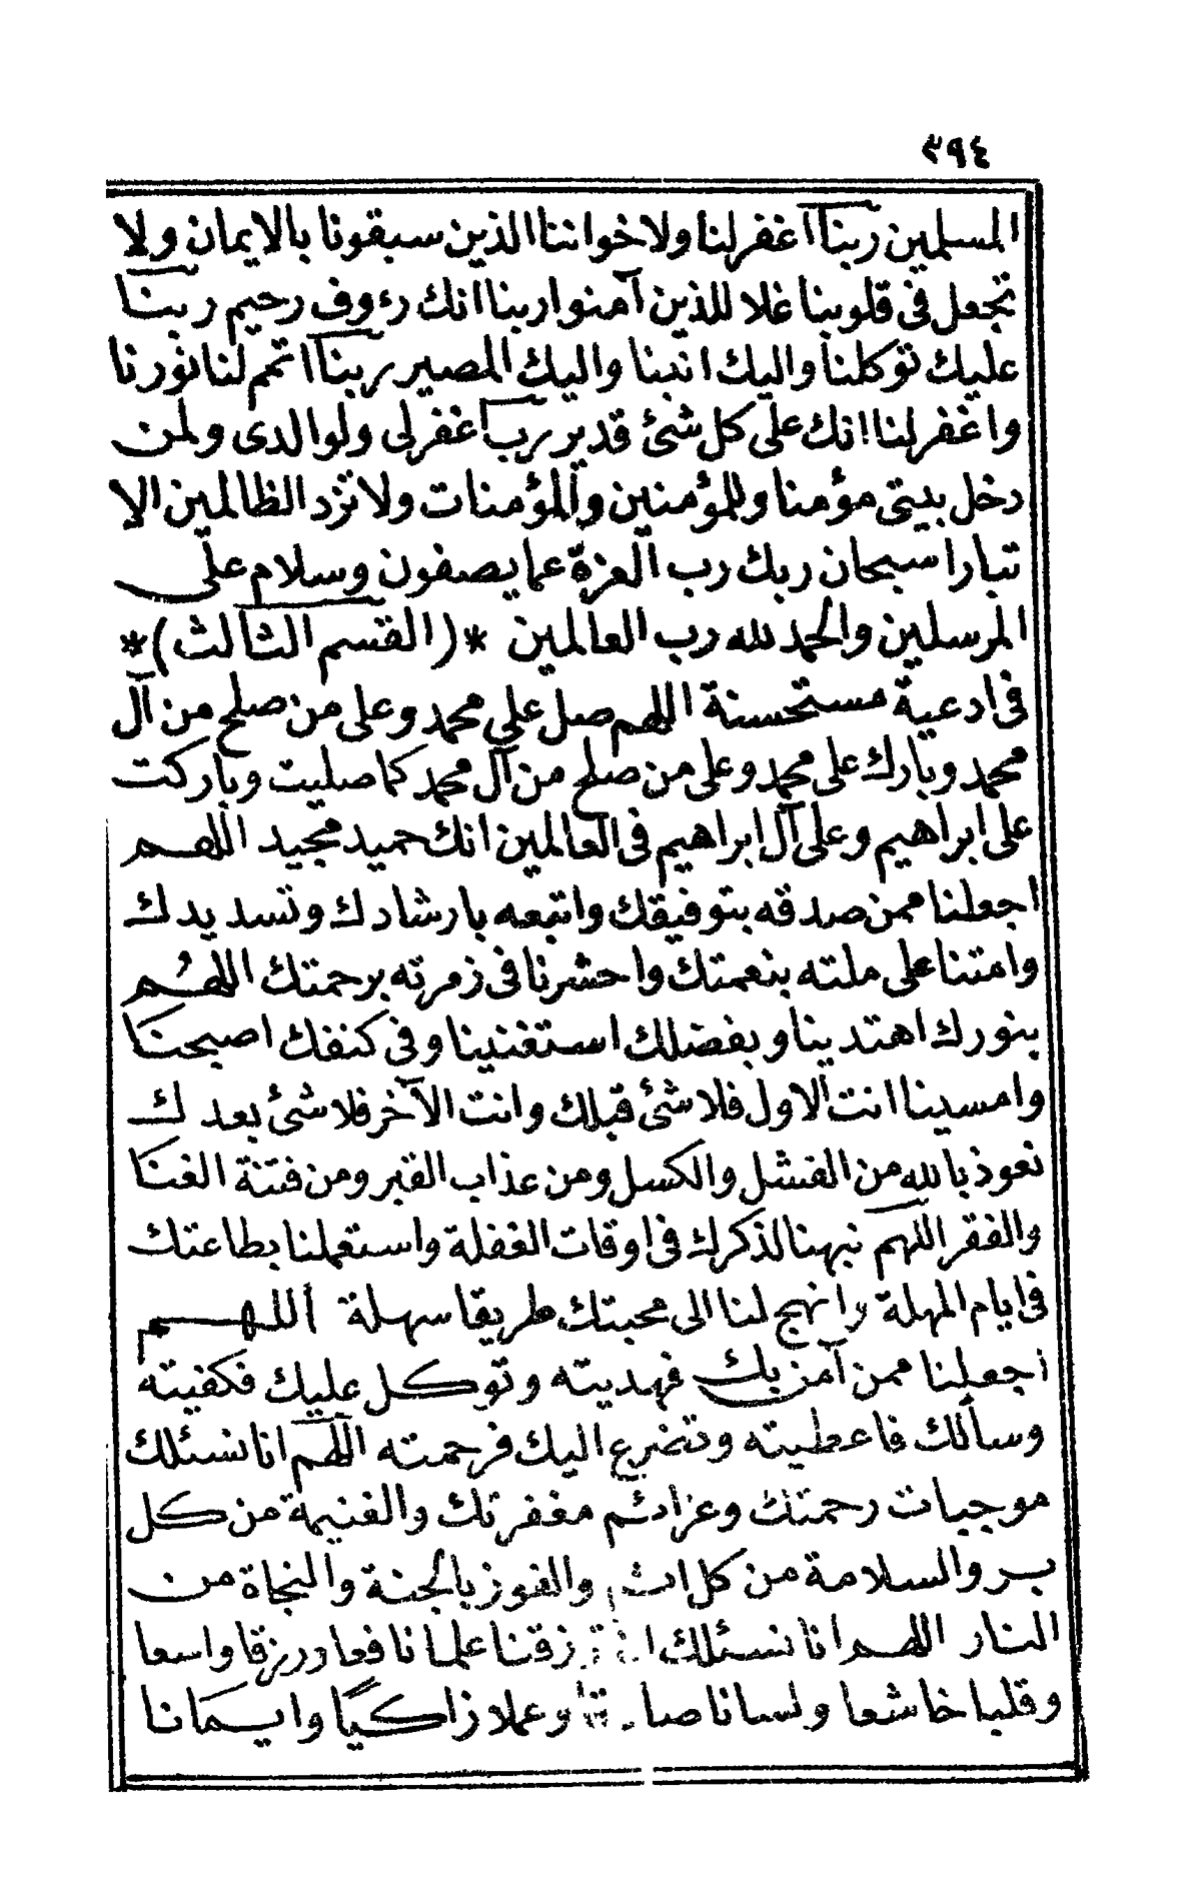 ٣٩٤
المسلمين ربنا اغفر لنا ولاخواننا الذين سبقونا بالايمان ولا
تجعل فى قلوبنا غلا للذين آمنوا ربنا انك رءوف رحيم ربنا
عليك توكلنا واليك انبنا واليك المصير ربنا اتمم لنا نورنا
واغفر لنا انك على كل شئ قدير رب اغفر لى ولوالدى ولمن
دخل بيتى مؤمنا وللمؤمنين والمؤمنات ولا تزد الظالمين الا
تبارا سبحان ربك رب العزة عما يصفون وسلام على
المرسلين والحمد لله رب العالمين *(القسم الثالث)*
فى ادعية مستحسنة اللهم صل على محمد وعلى من صلح من آل
محمد وبارك على محمد وعلى من صلح من آل محمد كما صليت وباركت
على ابراهيم وعلى آل ابراهيم فى العالمين انك حميد مجيد اللهم
اجعلنا ممن صدقه بتوفيقك واتبعه بارشادك وتسديدك
وامتنا على ملته بنعمتك واحشرنا فى زمرته برحمتك اللهم
بنورك اهتدينا وبفضلك استغنينا وفى كنفك اصبحنا
وامسينا انت الاول فلا شئ قبلك وانت الآخر فلا شئ بعدك
نعوذ بالله من الفشل والكسل ومن عذاب القبر ومن فتنة الغنا
والفقر اللهم نبهنا لذكرك فى اوقات الغفلة واستعملنا بطاعتك
فى ايام المهلة وانهج لنا الى محبتك طريقا سهلة اللهم
اجعلنا ممن آمن بك فهديته وتوكل عليك فكفيته
وسألك فاعطيته وتضرع اليك فرحمته اللهم انا نسئلك
موجبات رحمتك وعزائم مغفرتك والغنيمة من كل
بر والسلامة من كل اثم والفوز بالجنة والنجاة من
النار اللهم انا نسئلك ان ترزقنا علما نافعا ورزقا واسعا
وقلبا خاشعا ولسانا صادقا وعملا زاكيا وايمانا